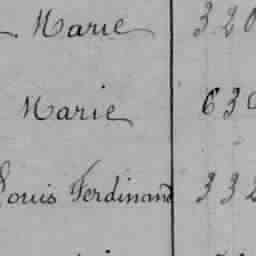 Marie 320
Marie 630
Louis Ferdinand 332